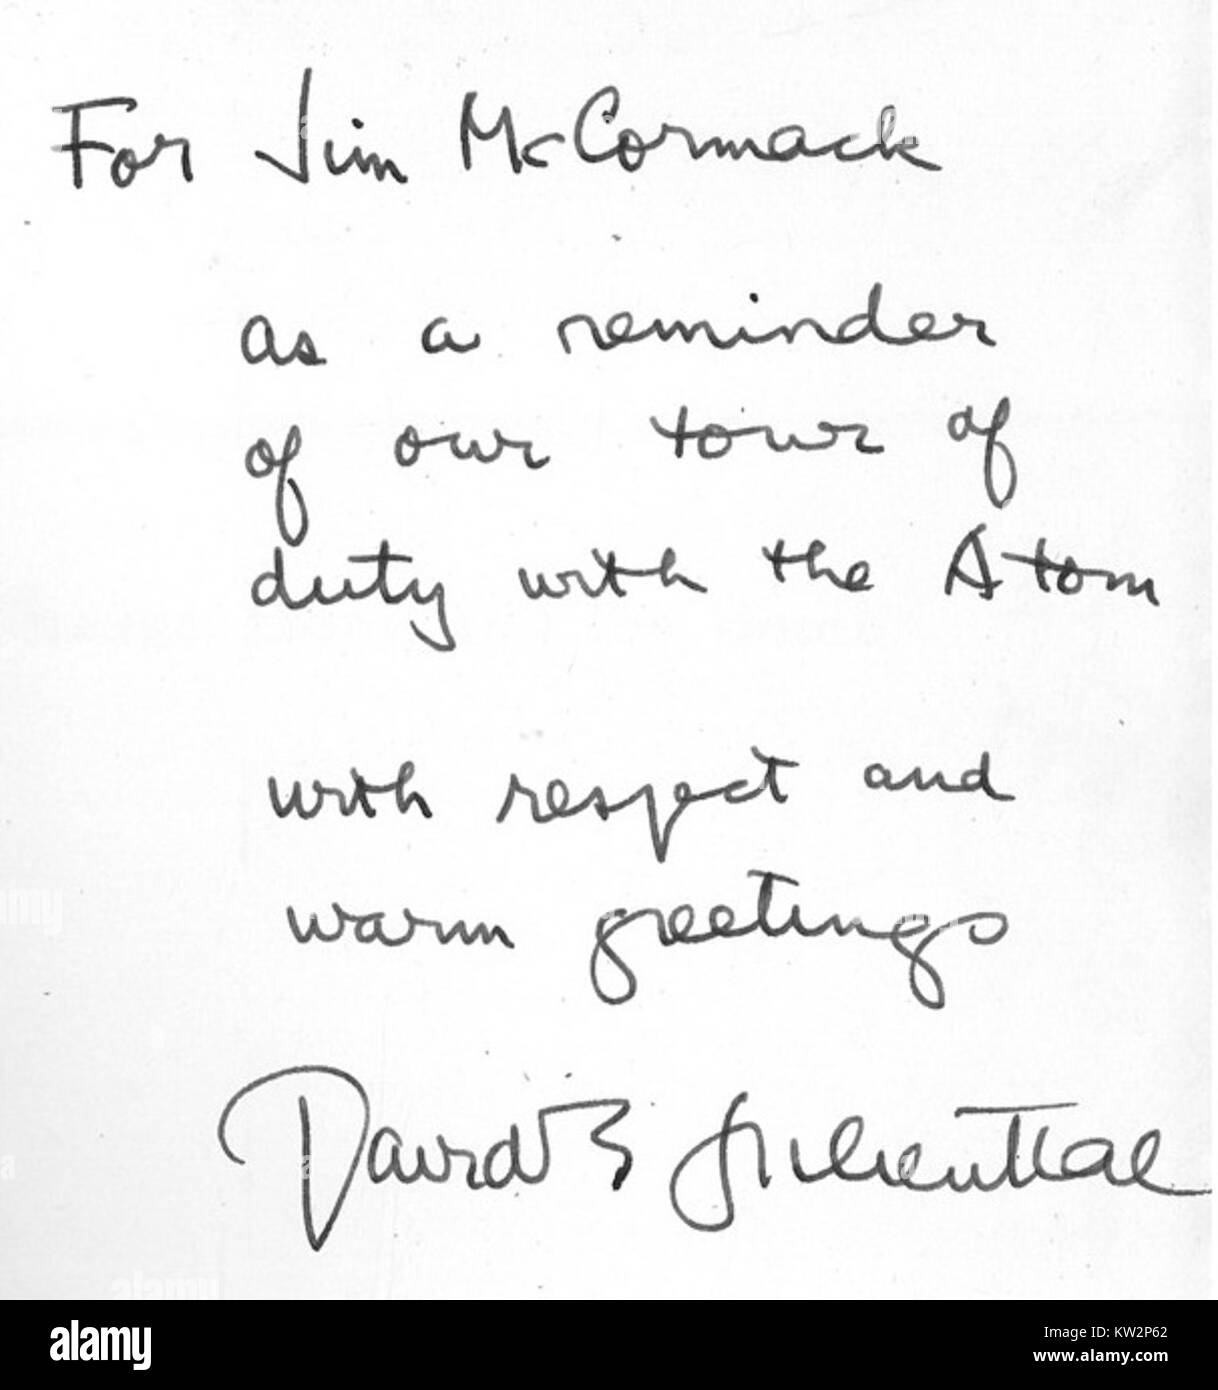 For Jim McCormack
as a reminder
of our tour of
duty with the Atom
with respect and
warm greetings
David E Lilienthal
alamy
Image ID: KW2P62
www.alamy.com